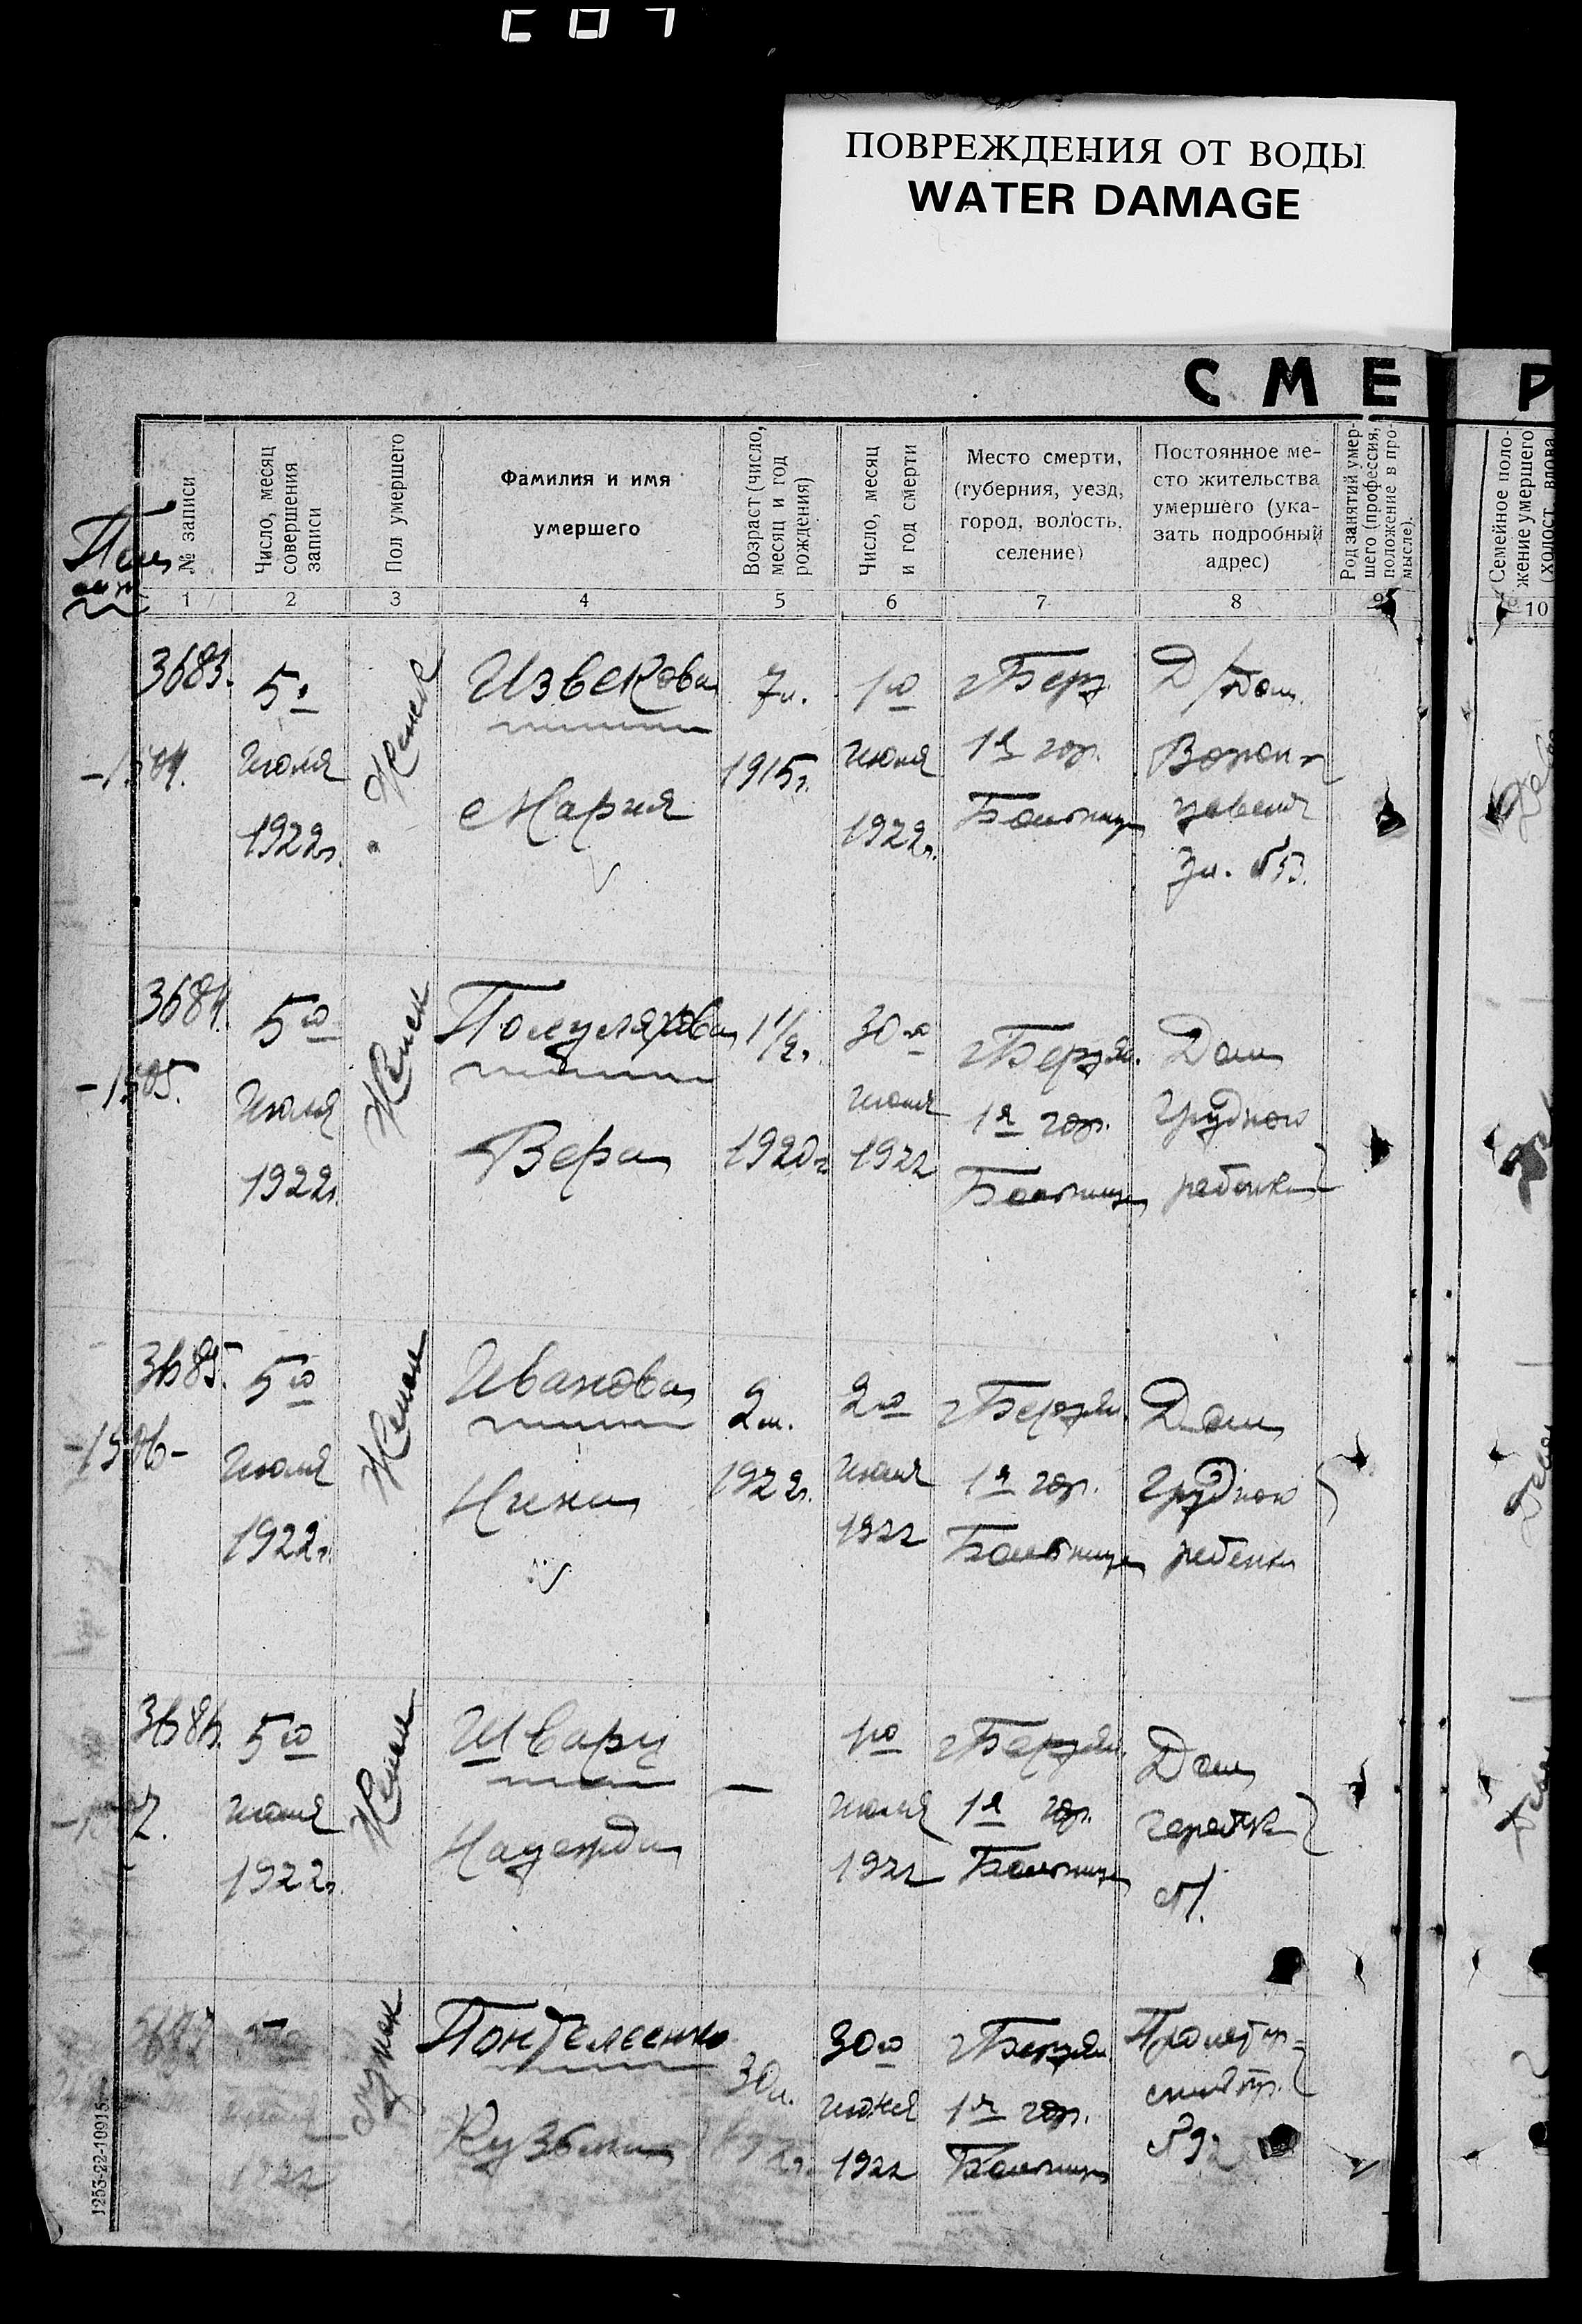 ПОВРЕЖДЕНИЯ ОТ ВОДЫ
WATER DAMAGE
СМЕ Р
№ записи
Число, месяц
совершения
записи
Пол умершего
Фамилия и имя
умершего
Возраст (число,
месяц и год
рождения)
Число, месяц
и год смерти
Место смерти,
(губерния, уезд,
город, волость,
селение)
Постоянное ме-
сто жительства
умершего (ука-
зать подробный
адрес)
Род занятий умер-
шего (профессия,
положение в про-
мысле).
Семейное поло-
жение умершего
(холост, вдова
1 2 3 4 5 6 7 8 9 10
3683.
5го
Июля
1922г.
Женск
Извекова
Мария
7л.
1915г.
1го
июля
1922г.
г Берд
1я гор.
Больница
Д/дом.
Ворон-
цовская
ул. №53.
3684.
-1505.
5го
Июля
1922г.
Женск
Вера
1 1/2г.
1920г
30го
июня
1922
г Бердян.
1я гор.
Больница
Дом
Грудного
ребенка
3685.
-1506-
5го
Июля
1922г.
Женск
Иванова
Нина
2м.
1922г.
2го
июля
1922
г Бердян.
1я гор.
Больница
Дом
Грудного
ребенка
3686.
5го
июля
1922г.
Женск
Шварц
Надежда
—
1го
июля
1922
г Бердян.
1я гор.
Больница
Дом
№1.
3687
1922
Мужск
Пантелеенко
Кузьма
30л.
30го
июня
1922
г Бердян.
1я гор.
Больница
Пролетар-
ский пр.
№92
1253-22-10915.